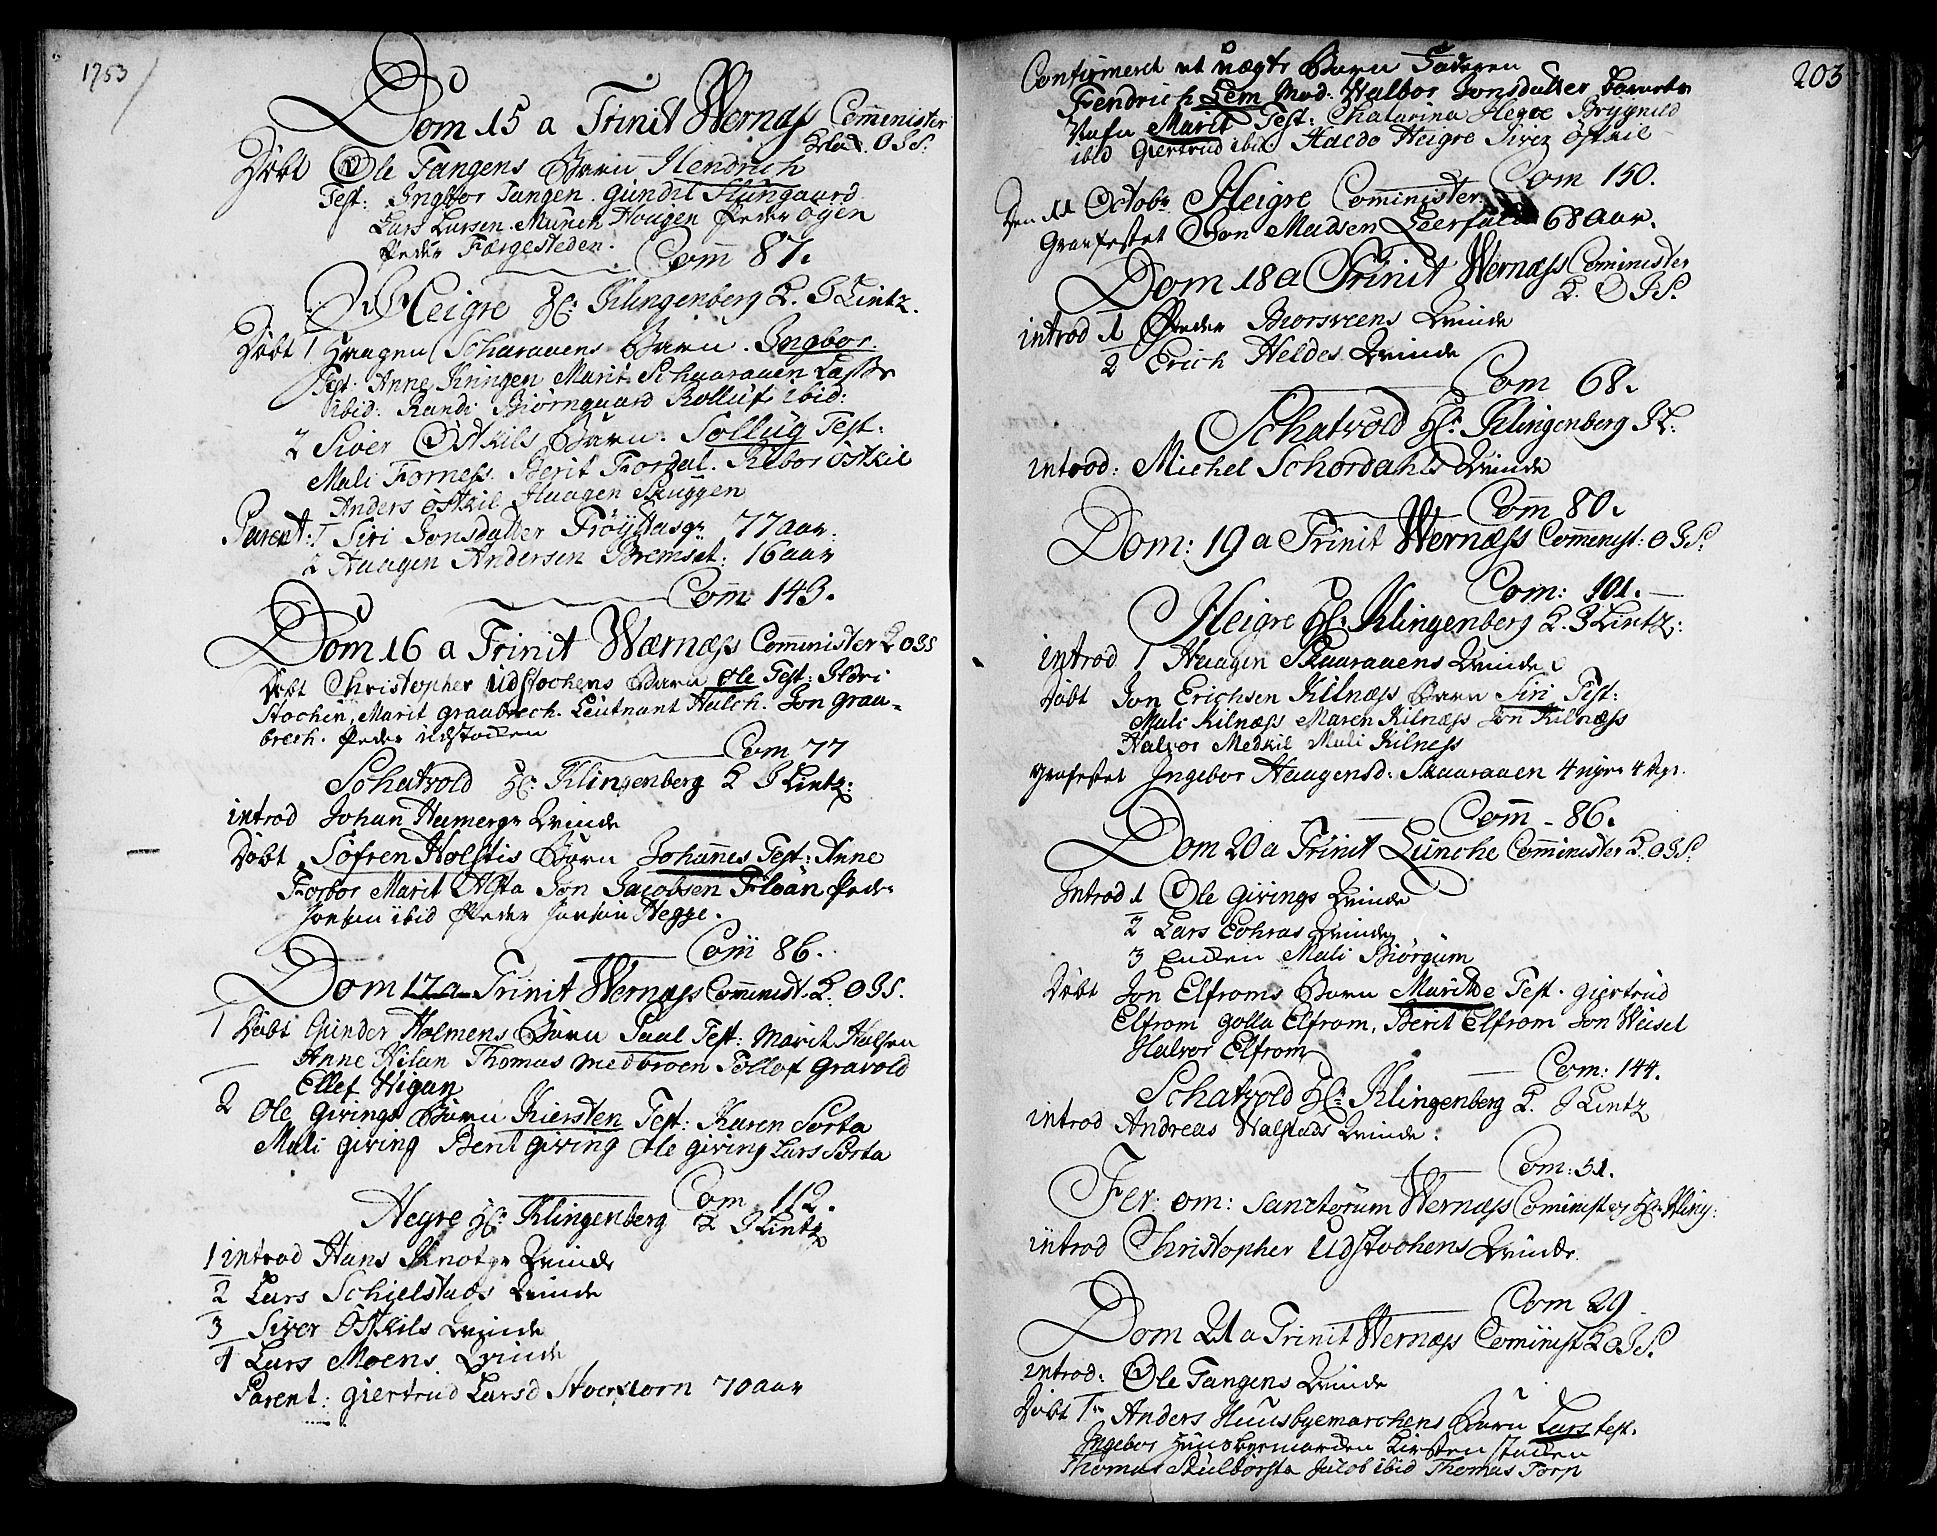 1753
Dom 15 a Trinit Wernæss Comminister
OJS.
Döbt Ole Tangens Barn Hendrich
Test: Ingbor Tangen. Gundil Stungaard
Lars Larsen. Munch Hougen Peder Öyen
Peder Færgesteden.
Com 87.
Heigre Hr: Klingenberg K. J Lintz.
Döbt 1 Haagen Scharavens Barn. Ingbor.
Test. Anne Kringen Marit Schaaraven Lasse
ibid: Randi Biörngaard Rolluf ibid:
2 Siver Östkils Barn. Sollug Test:
Mali Forness. Berit Fordal. Rebor Östkil
Anders Östkil Haagen Skuggen
Parent: 1 Siri Jonsdatter Fröysasgr 77 aar.
2 Haagen Andersen Bremset: 16 aar
Com 143.
Dom 16 a Trinit Wærnæss Comminister K OJS
Döbt Christopher Udstochens Barn Ole Test: Ildri
Stochen, Marit Graubrech. Leutnant Hulch. Jon Grau=
brech. Peder Udstocken
Com 77
Schatvold Hr: Klingenberg K J Lintz:
introd Johan Hamergr Qvinde
Döbt Söfren Holstis Barn Johannes Test: Anne
Forbor Marit Alsta Jon Jacobsen Floan Peder
Jonsen ibid Peder Jonsen Hegge.
Com 86.
Dom 17 a Trinit Wernæss Comminist. K. OJS.
1 Döbt Gunder Holmens Barn Paal Test: Marit Halsen
Anne Hilan Thomas Medbroen Tollof Gravold
Ellef Higan
2 Ole Givings Barn Kiersten Test: Karen Sorta
Mali Giving Berit Giving Ole Giving Lars Sorta
Com. 112.
Hegre Hr: Klingenberg K J Lintz
1 introd Hans Knotgr Qvinde
2 Lars Schielstads Qvinde
3 Siver Östkils Qvinde
4 Lars Moens Qvinde
Parent: Giertrud Larsd Storstorn 70 aar
203
Confirmeret et uægte Barn Faderen
Hendrich Lem Mod: Walbor Jonsdatter barnets
Nafn Marit Test: Chatarina Hegre Brÿgnild
ibid Giertrud ibid: Haldo Heigre Siver Östkil
Com 150.
Den 11 Octobr Heigre Comminister
Graufestet Jon Madsen Leerfald 68 aar.
Dom 18 a Trinit Wernæss Cominister
K. OJS.
introd 1 Peder Biorsveens Qvinde
2 Erich Heldes Qvinde
Com 68.
Schatvold Hr: Klingenberg JL:
introd: Michel Schordahls Qvinde
Com 80.
Dom: 19 a Trinit Wernæss Comminist: OJS.
Com: 101.
Heigre Hr: Klingenberg K. J Lintz:
introd 1 Haagen Skaaravens Qvinde
Döbt Jon Erichsen Kilnæss Barn Siri Test:
Mali Kilnæss Maren Kilnæss Jon Kilnæss
Halvor Medkil Mali Kilness
Grafestet Ingebor Haagensd: Skaaraven 4 uger 4
Com - 86.
Dom 20 a Trinit Lunche Comminister K. OJS.
Introd 1 Ole Givings Qvinde
2 Lars Eohras Qvinde
3 Encken Mali Biörgum
Döbt Jon Elfroms Barn Maritde Test. Giertrud
Elfrom Golla Elfrom, Berit Elfrom Jon Weisel
Halvor Elfrom
Com: 144.
Schatvold Hr: Klingenberg K. J Lintz
introd Andreas Walstads Qvinde:
Com: 51.
Fer: om: Sanctorum Wernæss Cominister Hr Kling:
introd Christopher Udstochens Qvinde.
Com 29
Dom 21 a Trinit Wernæss Cominist K OJS.
introd: Ole Tangens Qvinde
Döbt 1 Anders Huusbyemarchens Barn Lars test.
Ingebor Huusbyemarcken Kirsten Stacken
Thomas Skulbörsta Jacob ibid Thomas Torp